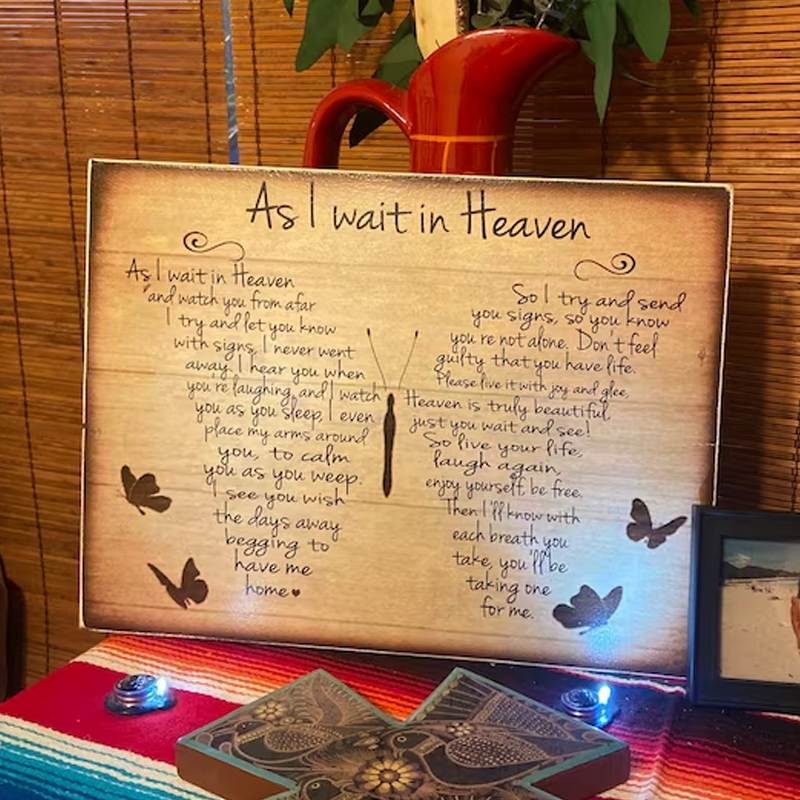 As I wait in Heaven
As I wait in Heaven
and watch you from afar
I try and let you know
with signs, I never went
away. I hear you when
you're laughing, and I watch
you as you sleep, I even
place my arms around
you, to calm
you as you weep.
I see you wish
the days away
begging to
have me
home
So I try and send
you signs, so you know
you're not alone. Don't feel
guilty that you have life.
Please live it with joy and glee,
Heaven is truly beautiful,
just you wait and see!
So live your life,
laugh again,
enjoy yourself, be free.
Then I'll know with
each breath you
take, you'll be
taking one
for me.